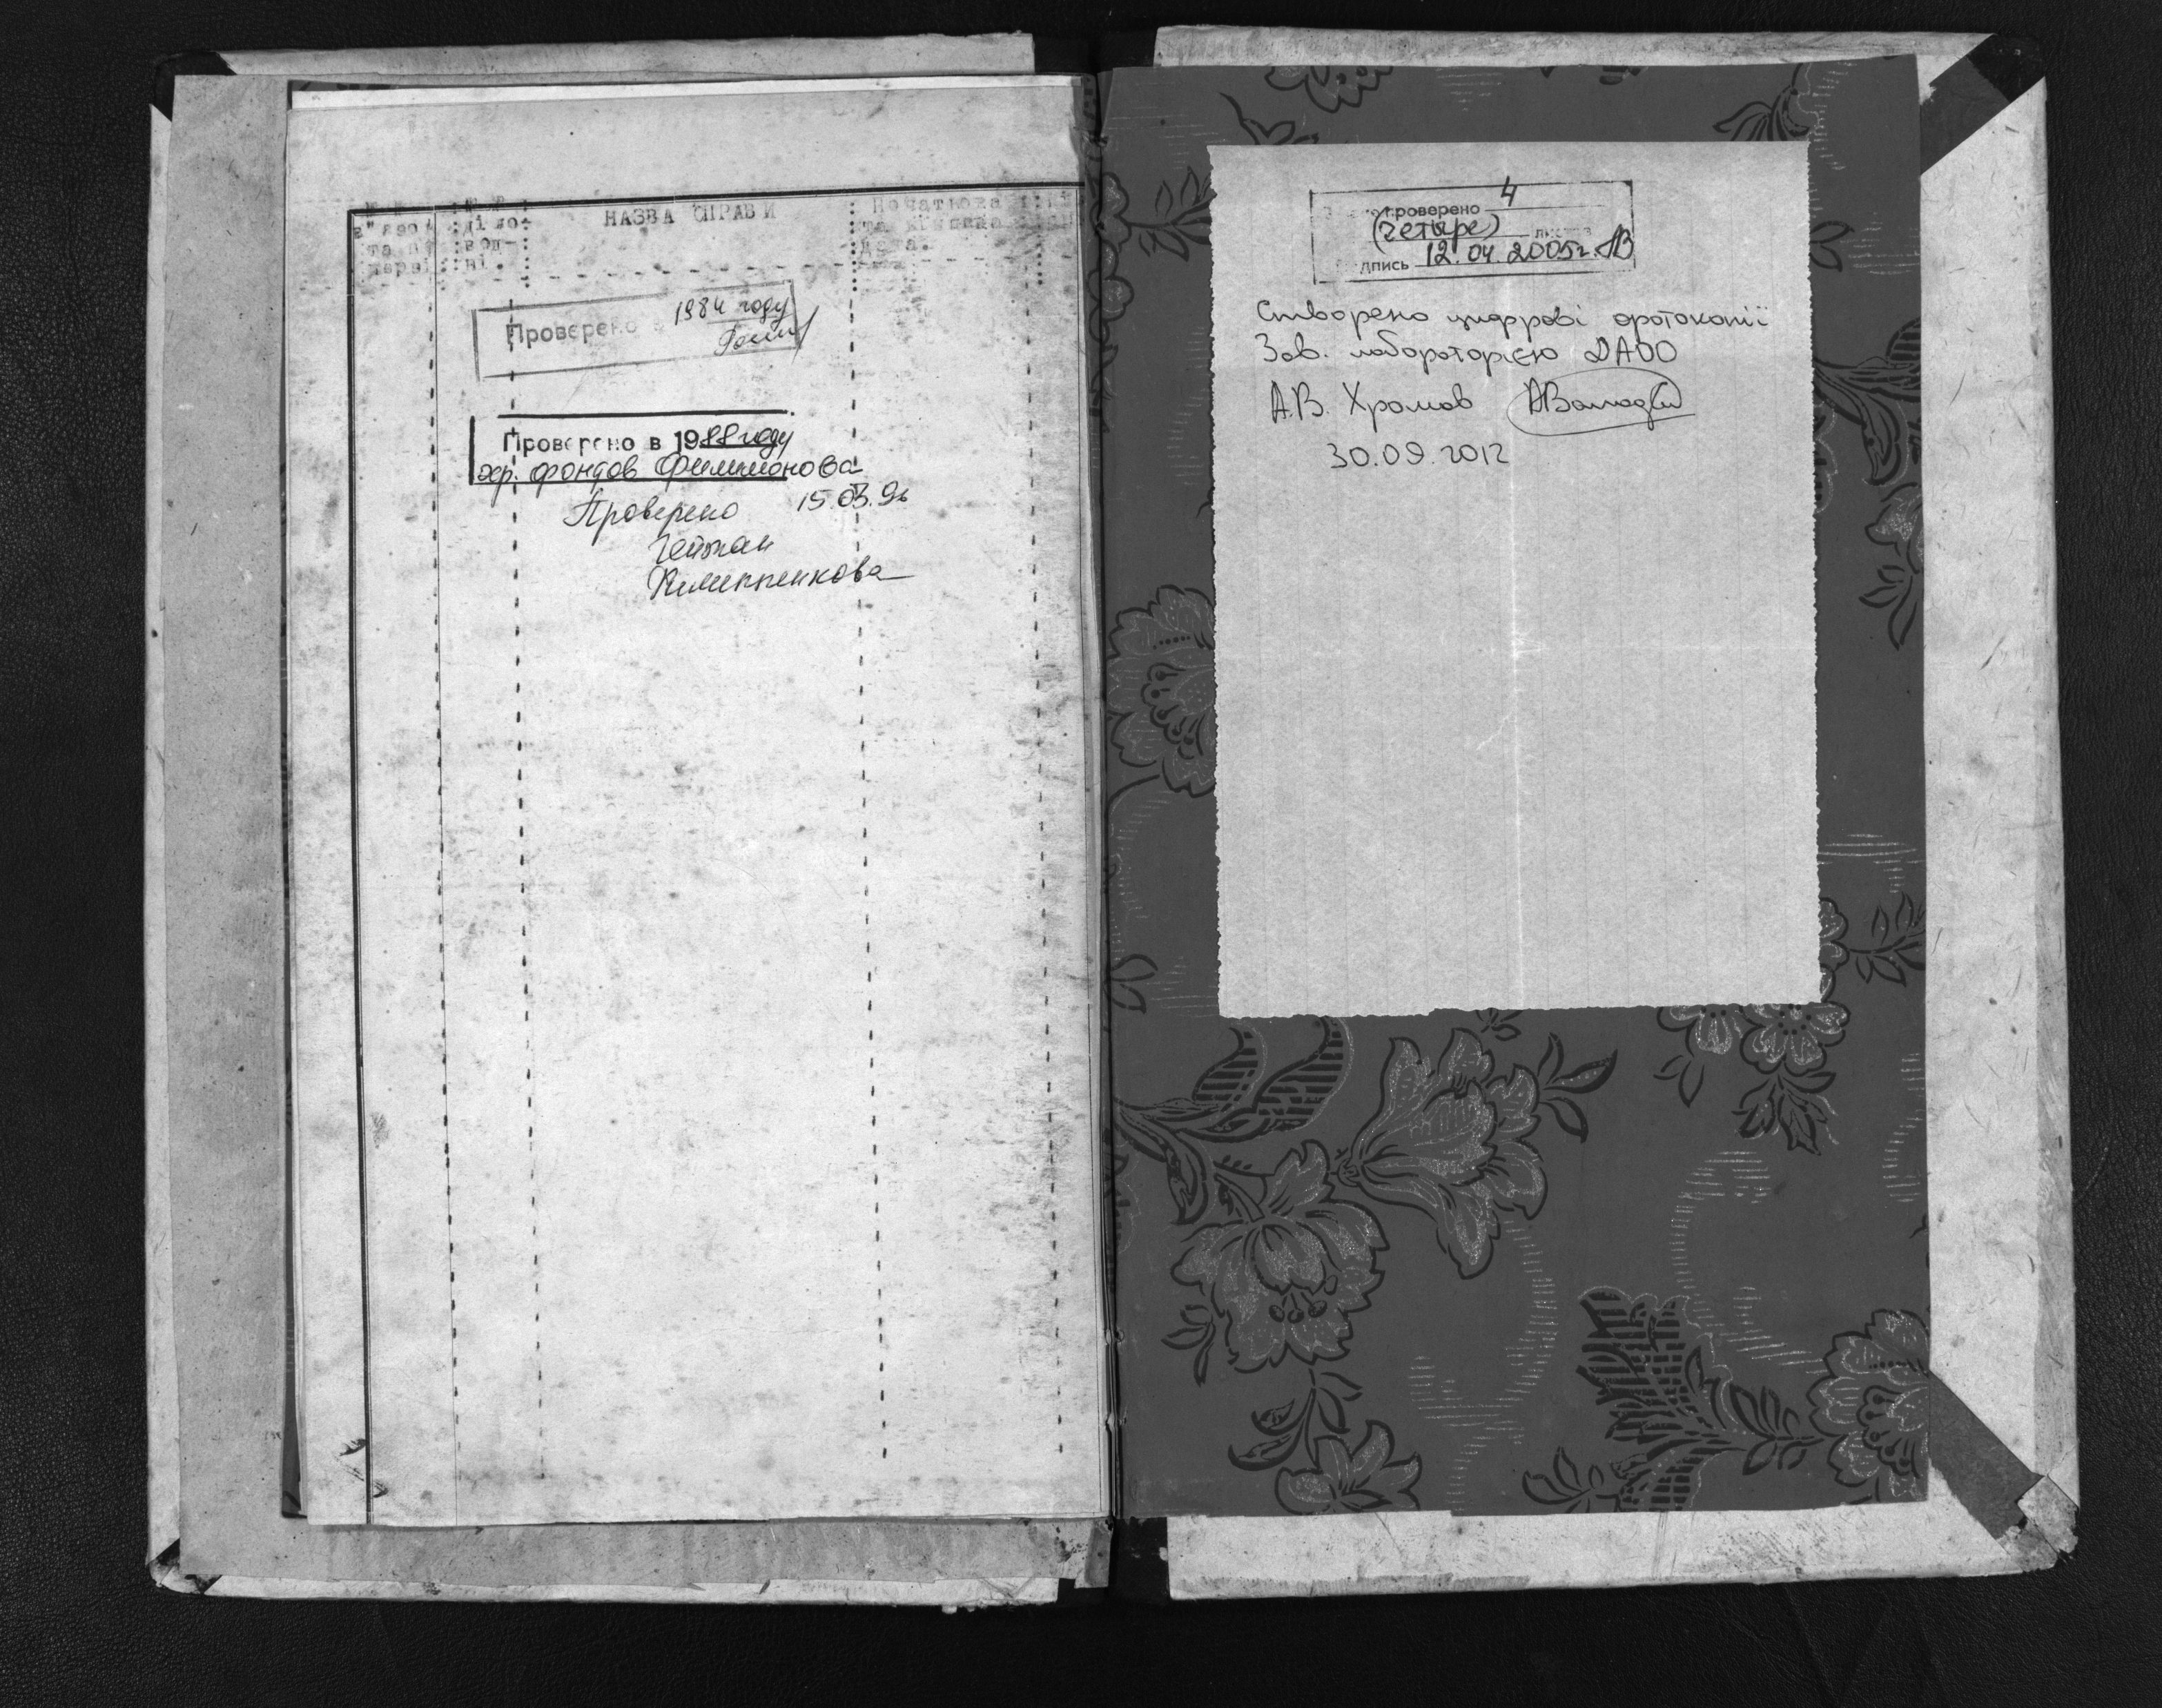 НАЗВА СПРАВИ
Початкова
та кінцева
дата.
в"язо
діло-
та п
вод-
ні.
Проверено в 1984 году
Проверено в 1988 году
хр. фондов Филимонова
Проверено 15.03.96
Гейман
Пилипенкова
проверено 4
(четыре) листов
дпись 12.04.2005г.
Створено цифрові фотокопії
Зав. лабораторією ДАОО
А.В. Хромов
30.09.2012